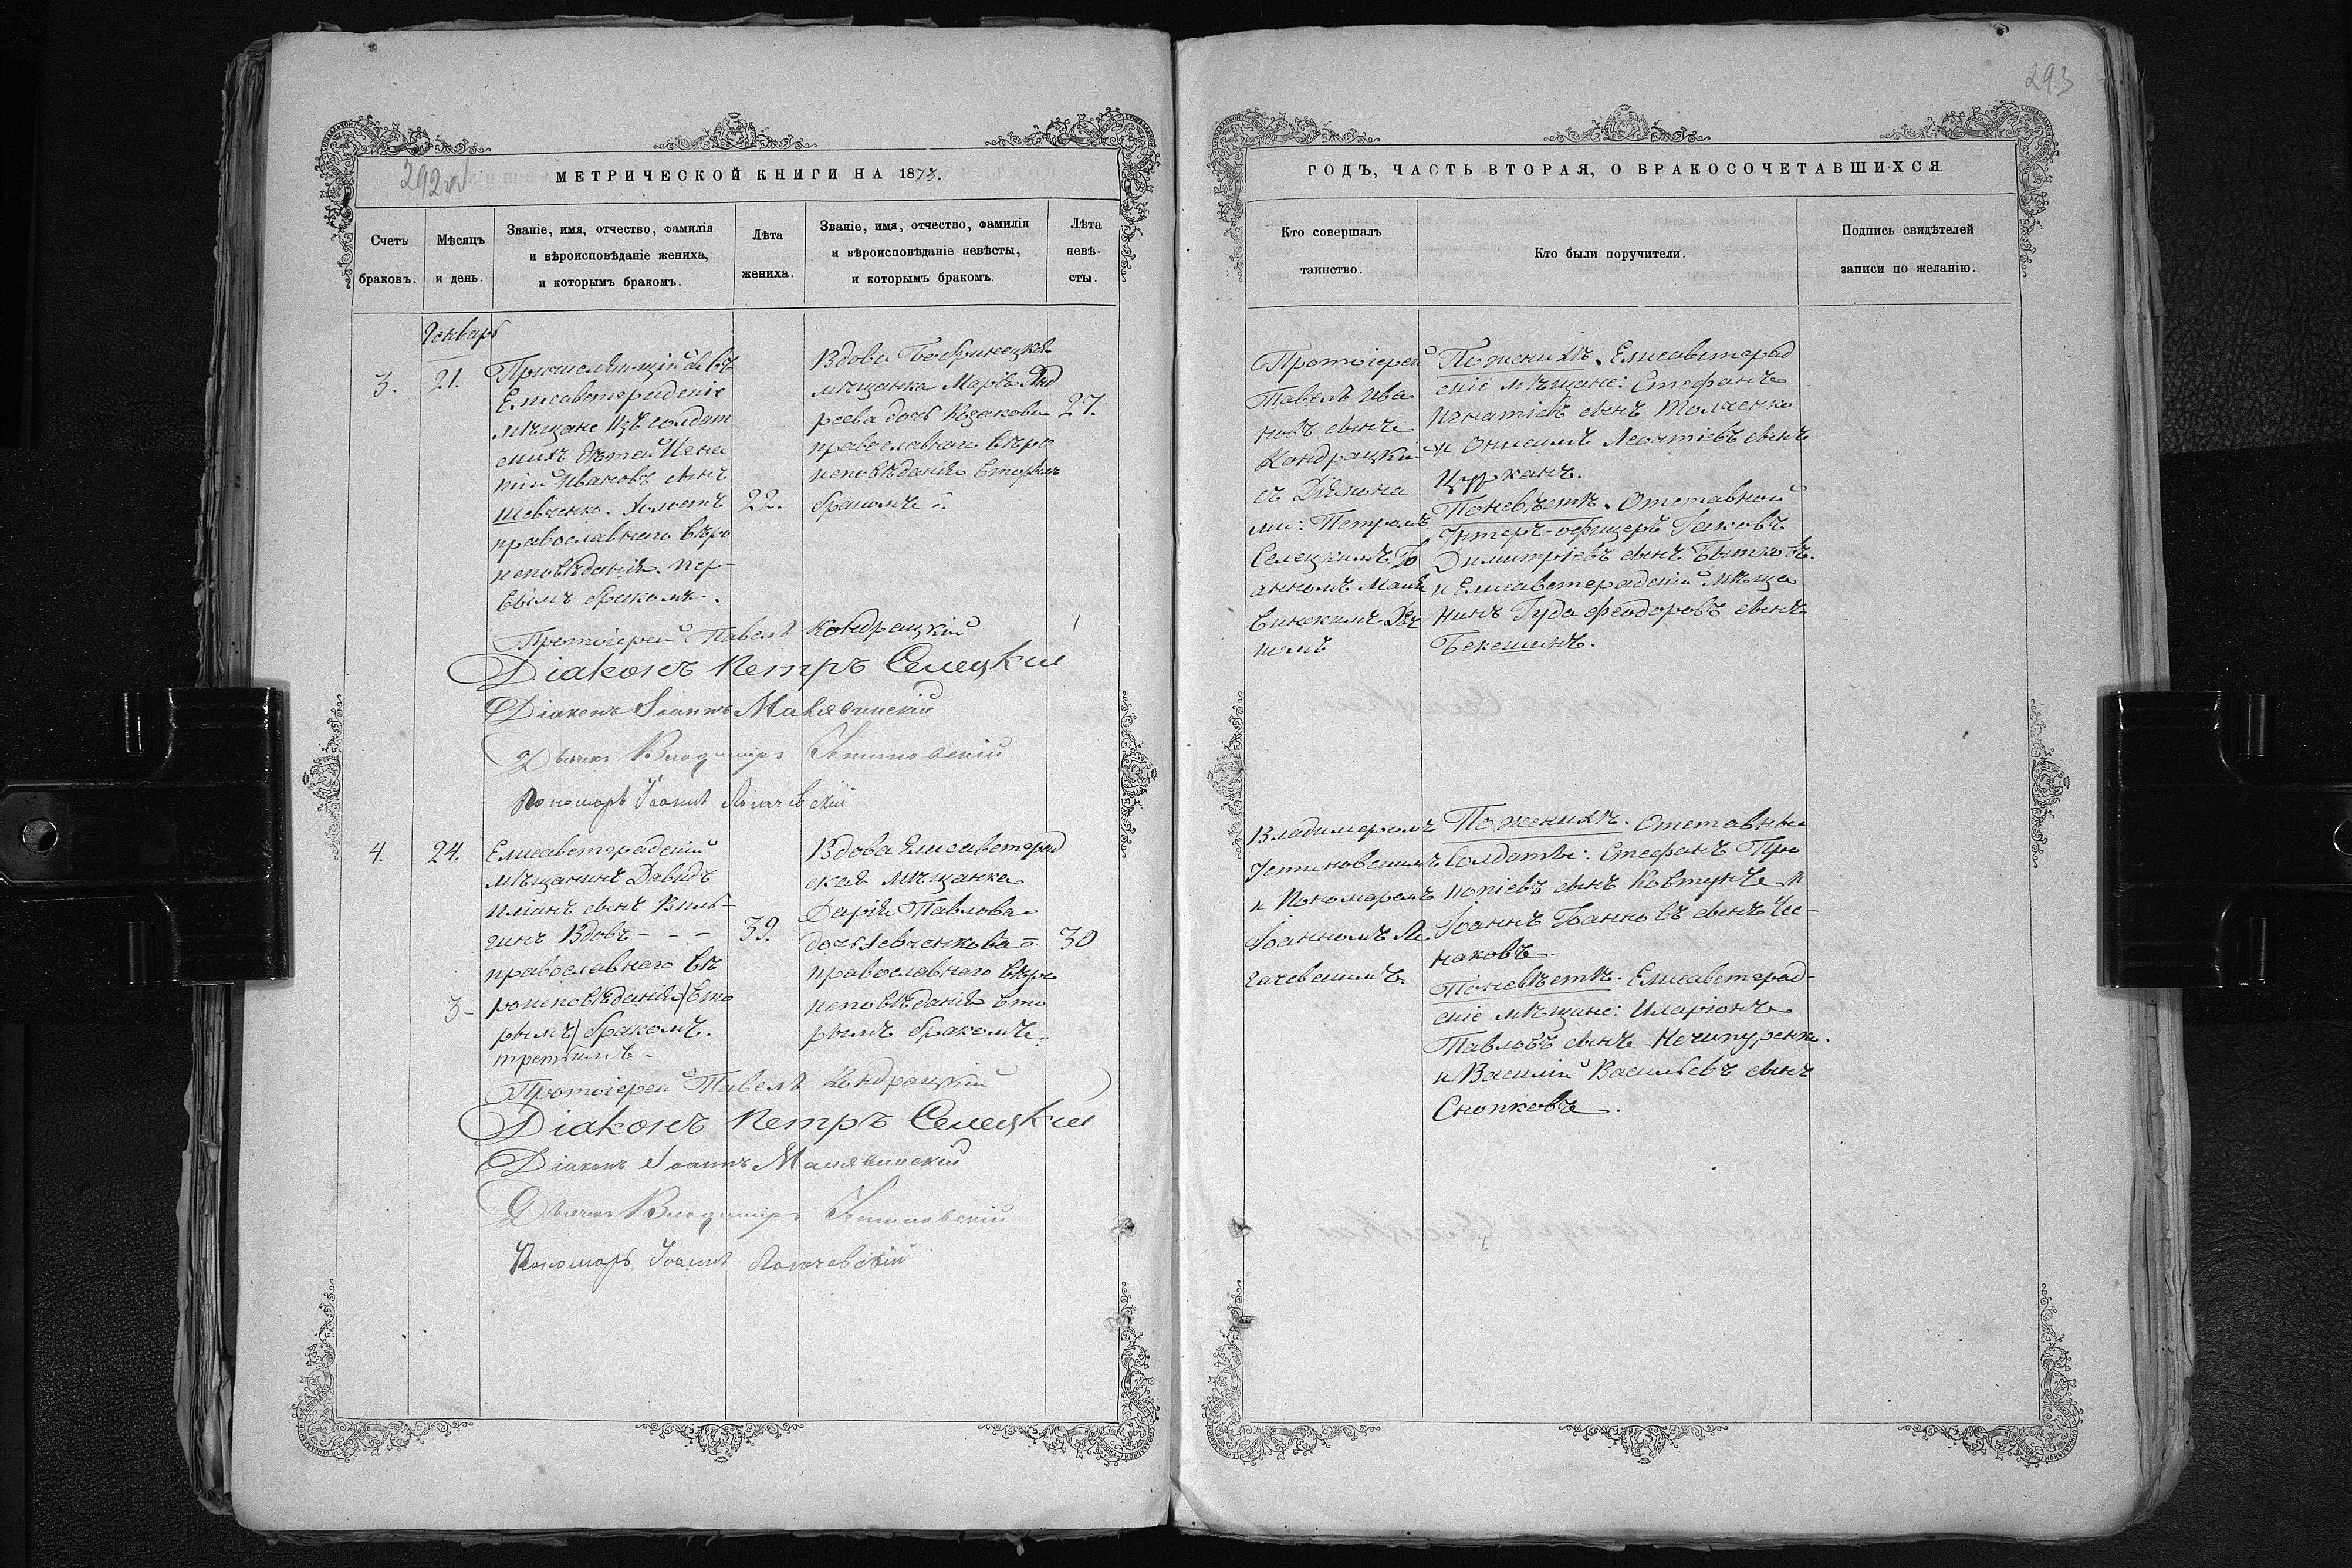 293
292 об
МЕТРИЧЕСКОЙ КНИГИ НА 1873.
Счетъ
браковъ.
Мѣсяцъ
и день.
Званіе, имя, отчество, фамилія
и вѣроисповѣданіе жениха,
и которымъ бракомъ.
Лѣта
жениха.
Званіе, имя, отчество, фамилія
и вѣроисповѣданіе невѣсты,
и которымъ бракомъ.
Лѣта
невѣ-
сты.
Январь
3.
21.
Причисляющійся въ
Елисаветградскіе
мѣщане изъ солдат
скихъ дѣтей Игна
тій Ивановъ сынъ
Шевченко. Холостъ
православнаго вѣро
исповѣданія. пер-
вымъ бракомъ.
22.
Вдова Бобринецкая
мѣщанка Марія Анд
реева дочь Козакова
православнаго вѣро
исповѣданія вторымъ
бракомъ
27.
Протоіерей Павелъ Кондрацкій
Діаконъ Петръ Селецкій
Діаконъ Іоаннъ Малявинскій
Дьячекъ Владиміръ Устиновскій
Пономарь Іоаннъ Логачевскій
4.
24.
Елисаветградскій
мѣщанинъ Давидъ
сынъ
Вдовъ - - -
православнаго вѣ
3- роисповѣданія/вто
рымъ/ бракомъ.
третьимъ.
39.
Вдова Елисаветград
ская мѣщанка
Дарія Павлова
дочь Левченкова
православнаго вѣро
исповѣданія вто
рымъ бракомъ.
30
Протоіерей Павелъ Кондрацкій
Діаконъ Петръ Селецкій
Діаконъ Іоаннъ Малявинскій
Дьячекъ Владиміръ Устиновскій
Пономарь Іоаннъ Логачевскій
ГОДЪ, ЧАСТЬ ВТОРАЯ, О БРАКОСОЧЕТАВШИХСЯ.
Кто совершалъ
таинство.
Кто были поручители.
Подпись свидѣтелей
записи по желанію.
Протоіерей
Павелъ Ива
новъ сынъ
Кондрацкій
съ Діакона
ми: Петромъ
Селецкимъ, Іо
анномъ Маля
винскимъ, Дьяч
комъ
По женихѣ. Елисаветград
скіе мѣщане: Стефанъ
Игнатіевъ сынъ Толченко
и Онисимъ Леонтіевъ сынъ
Цурканъ.
По невѣстѣ. Отставной
Унтеръ-офицеръ Іаковъ
Димитріевъ сынъ Бытковъ.
и Елисаветградскій мѣща
нинъ Іуда Феодоровъ сынъ
Бекешинъ.
Владиміромъ
Устиновскимъ
и Пономаремъ
Іоанномъ Ло
гачевскимъ.
По женихѣ. Отставные
Солдаты: Стефанъ Про
копіевъ сынъ Ковтунъ и
Іоаннъ Іоанновъ сынъ Чес-
наковъ.
По невѣстѣ. Елисаветград-
скіе мѣщане: Иларіонъ
Павловъ сынъ Нечипуренко.
и Василій Васильевъ сынъ
Снопковъ.